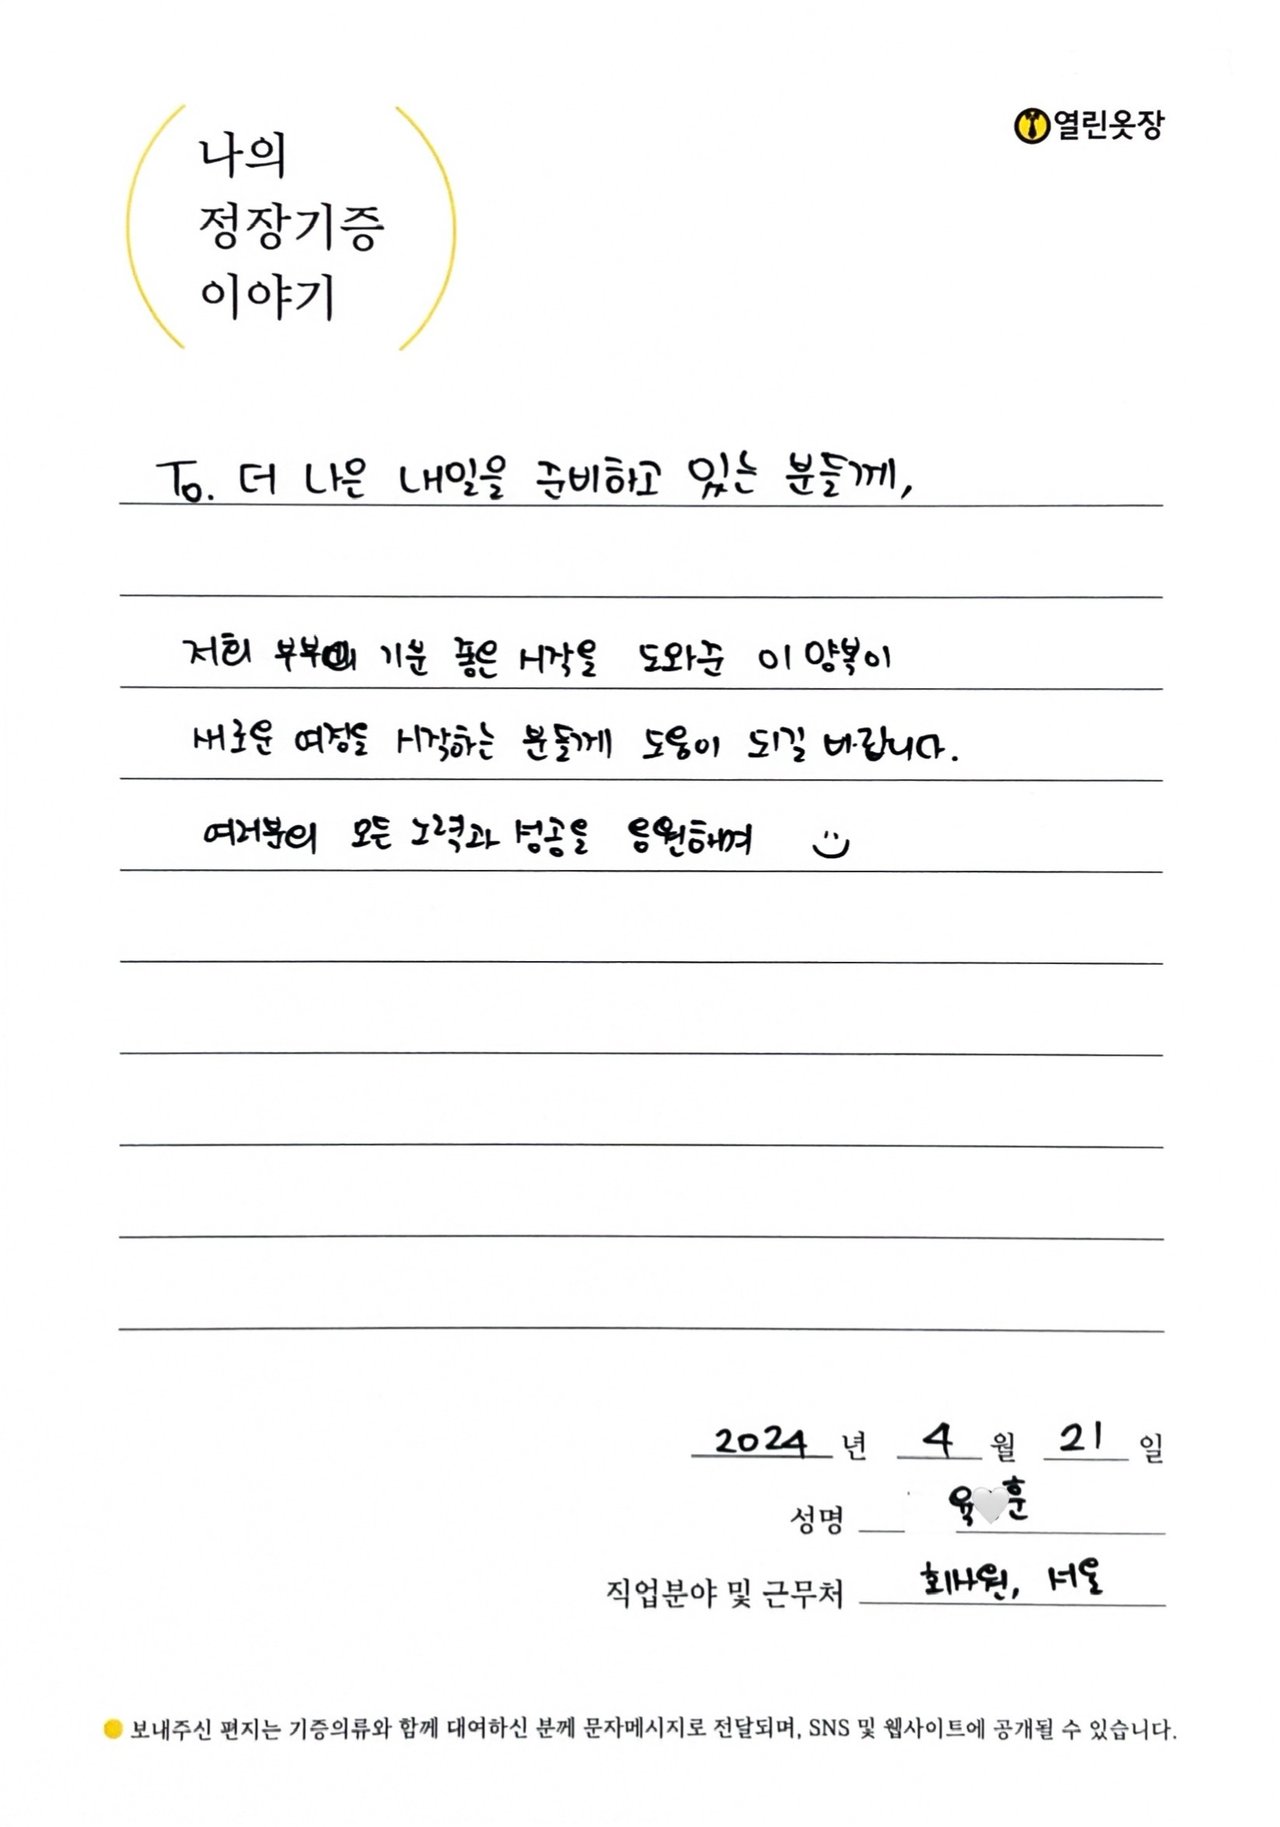 나의
정장기증
이야기
열린옷장
To. 더 나은 내일을 준비하고 있는 분들께,
저희 부부의 기분 좋은 시작을 도와준 이 양복이
새로운 여정을 시작하는 분들께 도움이 되길 바랍니다.
여러분의 모든 노력과 성공을 응원해며
2024 년 4 월 21 일
성명 육🤍훈
직업분야 및 근무처 회사원, 서울
보내주신 편지는 기증의류와 함께 대여하신 분께 문자메시지로 전달되며, SNS 및 웹사이트에 공개될 수 있습니다.